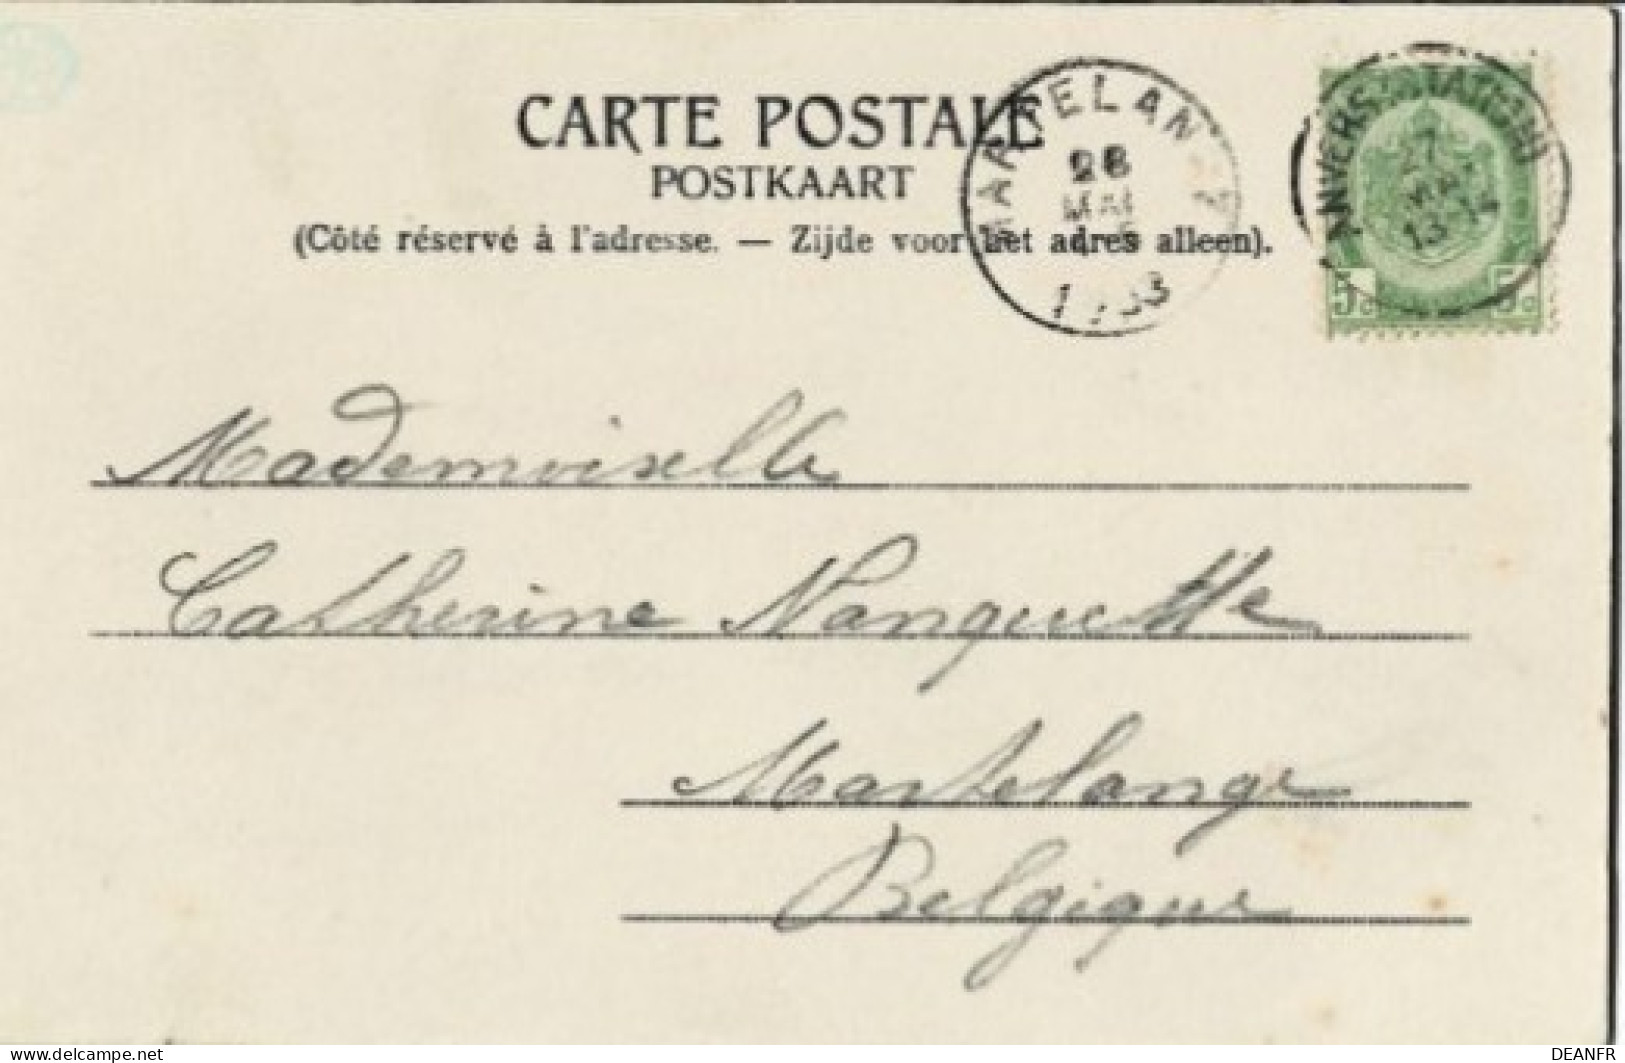 CARTE POSTALE
POSTKAART
(Côté réservé à l'adresse. — Zijde voor het adres alleen).
MARTELAN
28
MAI
ANVERS (STATION)
27
MAI
5c 5c
Mademoiselle
Catherine Nanquette
Martelange
Belgique
www.delcampe.net
DEANFR